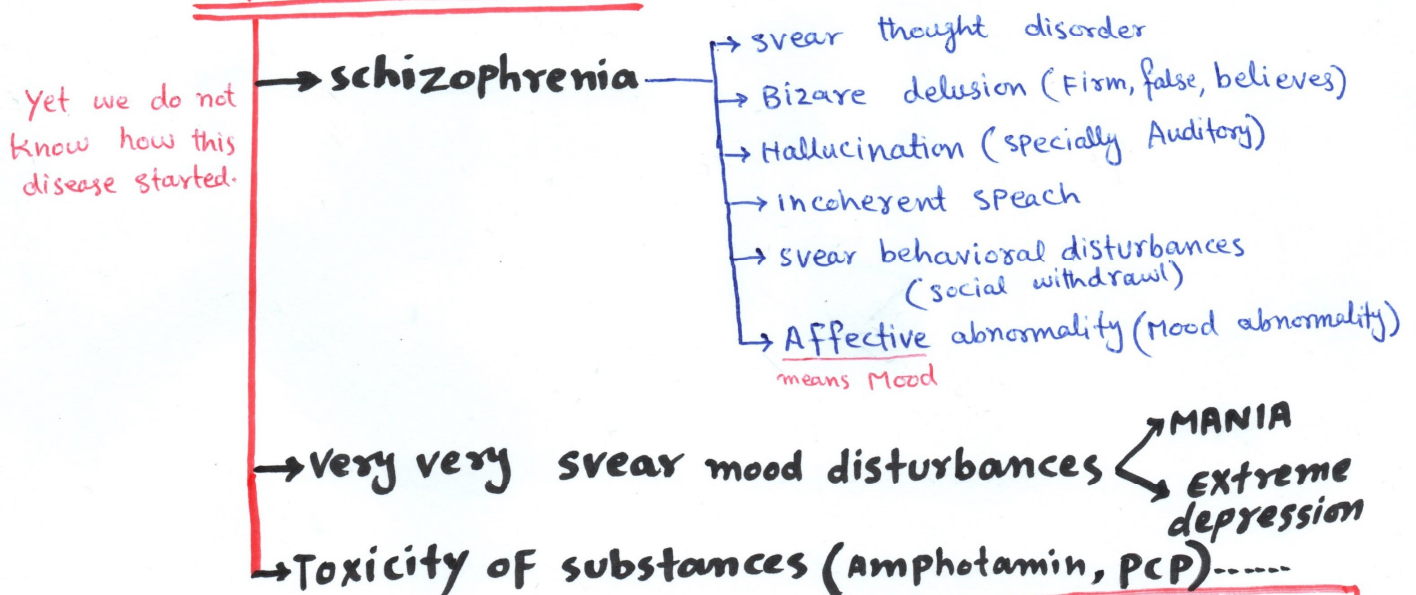 Yet we do not
know how this
disease started.
→ schizophrenia
→ svear thought disorder
→ Bizare delusion (Firm, false, believes)
→ Hallucination (specially Auditory)
→ incoherent speach
→ svear behavioral disturbances
(social withdrawl)
→ Affective abnormality (Mood abnormality)
means Mood
→ very very svear mood disturbances
→ MANIA
→ extreme
depression
→ Toxicity of substances (Amphotamin, PCP)------